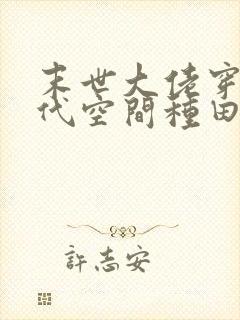 末世大佬穿
代空間種田
許志安